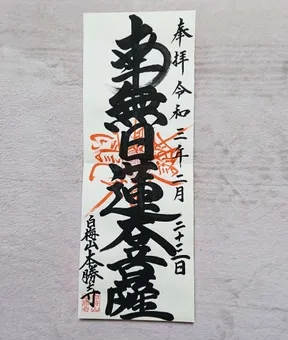 奉拝 令和三年二月二十三日
南無日蓮大菩薩
白梅山本勝寺